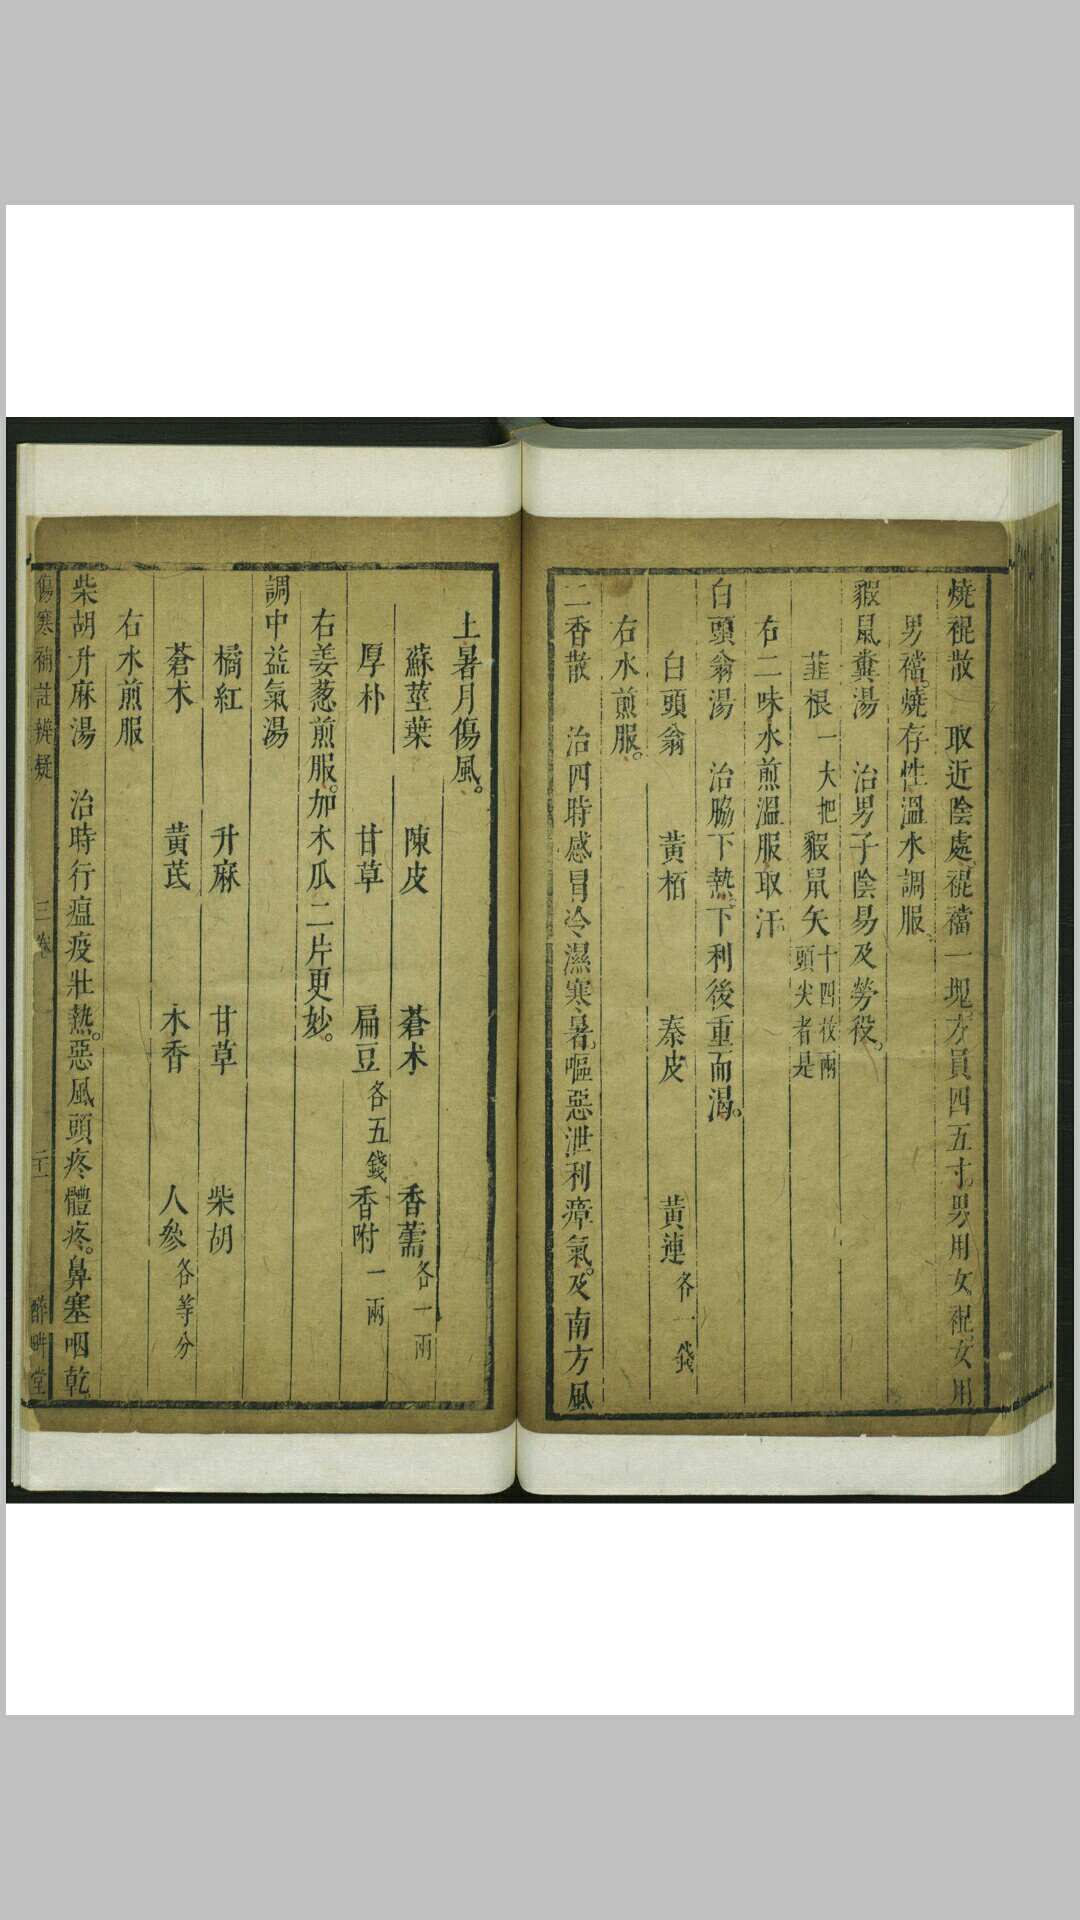 燒裩散 取近陰處裩襠一塊方員四五寸男用女裩女用
男襠燒存性溫水調服
豭鼠糞湯 治男子陰易及勞役
韮根一大把 豭鼠矢十四枚兩頭尖者是
右二味水煎溫服取汗
白頭翁湯 治脇下熱下利後重而渴
白頭翁 黃栢 秦皮 黃連各一錢
右水煎服
二香散 治四時感冒冷濕寒暑嘔惡泄利瘴氣及南方風
土暑月傷風
蘇莖葉 陳皮 蒼术 香薷各一兩
厚朴 甘草 扁豆各五錢 香附一兩
右姜葱煎服加木瓜二片更妙
調中益氣湯
橘紅 升麻 甘草 柴胡
蒼术 黃芪 木香 人參各等分
右水煎服
柴胡升麻湯 治時行瘟疫壯熱惡風頭疼體疼鼻塞咽乾
傷寒補註辨疑 三卷 二十一 醉畊堂